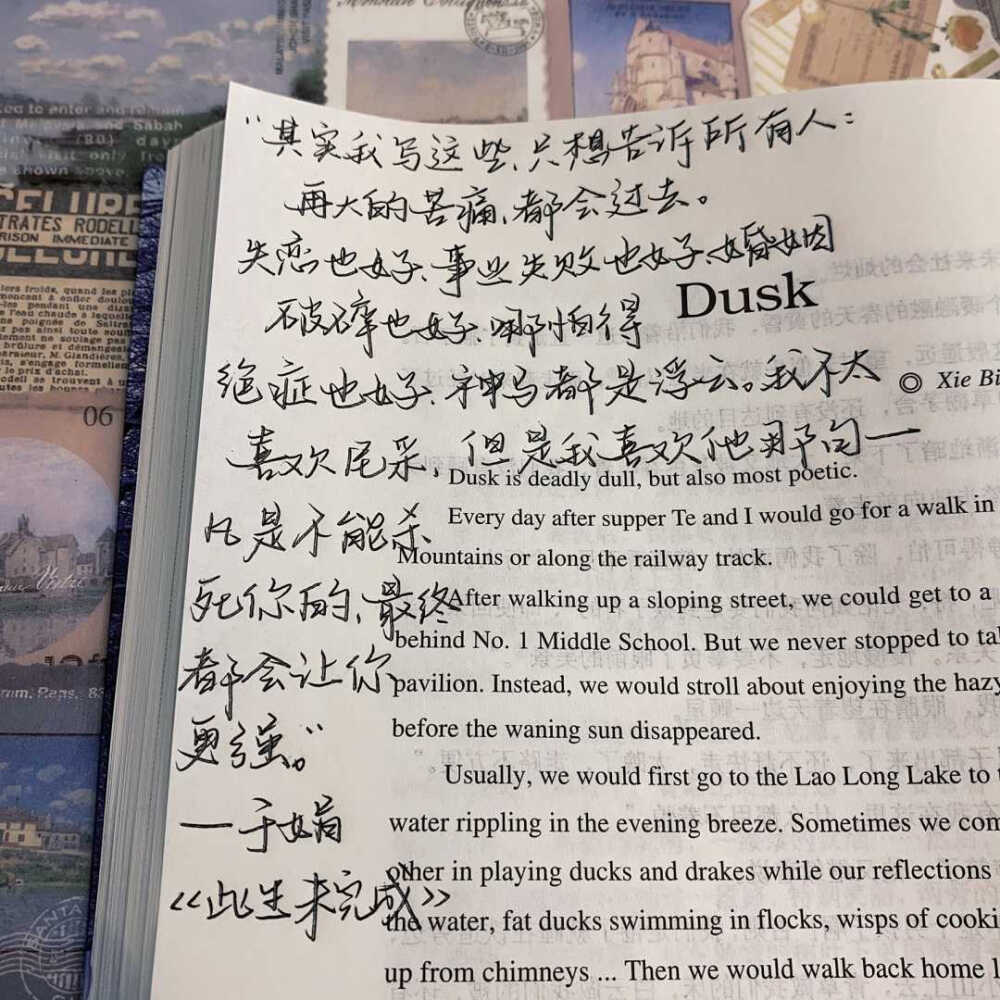 "其实我写这些、只想告诉所有人：
再大的苦痛、都会过去。
失恋也好、事业失败也好、婚姻
破碎也好、哪怕得
绝症也好、神马都是浮云。我不太
喜欢尼采，但是我喜欢他那句一
凡是不能杀
死你的、最终
都会让你
更强。"
—于娟
《此生未完成》
Dusk
◎ Xie Bi
Dusk is deadly dull, but also most poetic.
Every day after supper Te and I would go for a walk in
Mountains or along the railway track.
After walking up a sloping street, we could get to a
behind No. 1 Middle School. But we never stopped to tal
pavilion. Instead, we would stroll about enjoying the hazy
before the waning sun disappeared.
Usually, we would first go to the Lao Long Lake to
water rippling in the evening breeze. Sometimes we com
other in playing ducks and drakes while our reflections
the water, fat ducks swimming in flocks, wisps of cooki
up from chimneys ... Then we would walk back home
06
TRATES RODELL
RISON IMMEDIATE